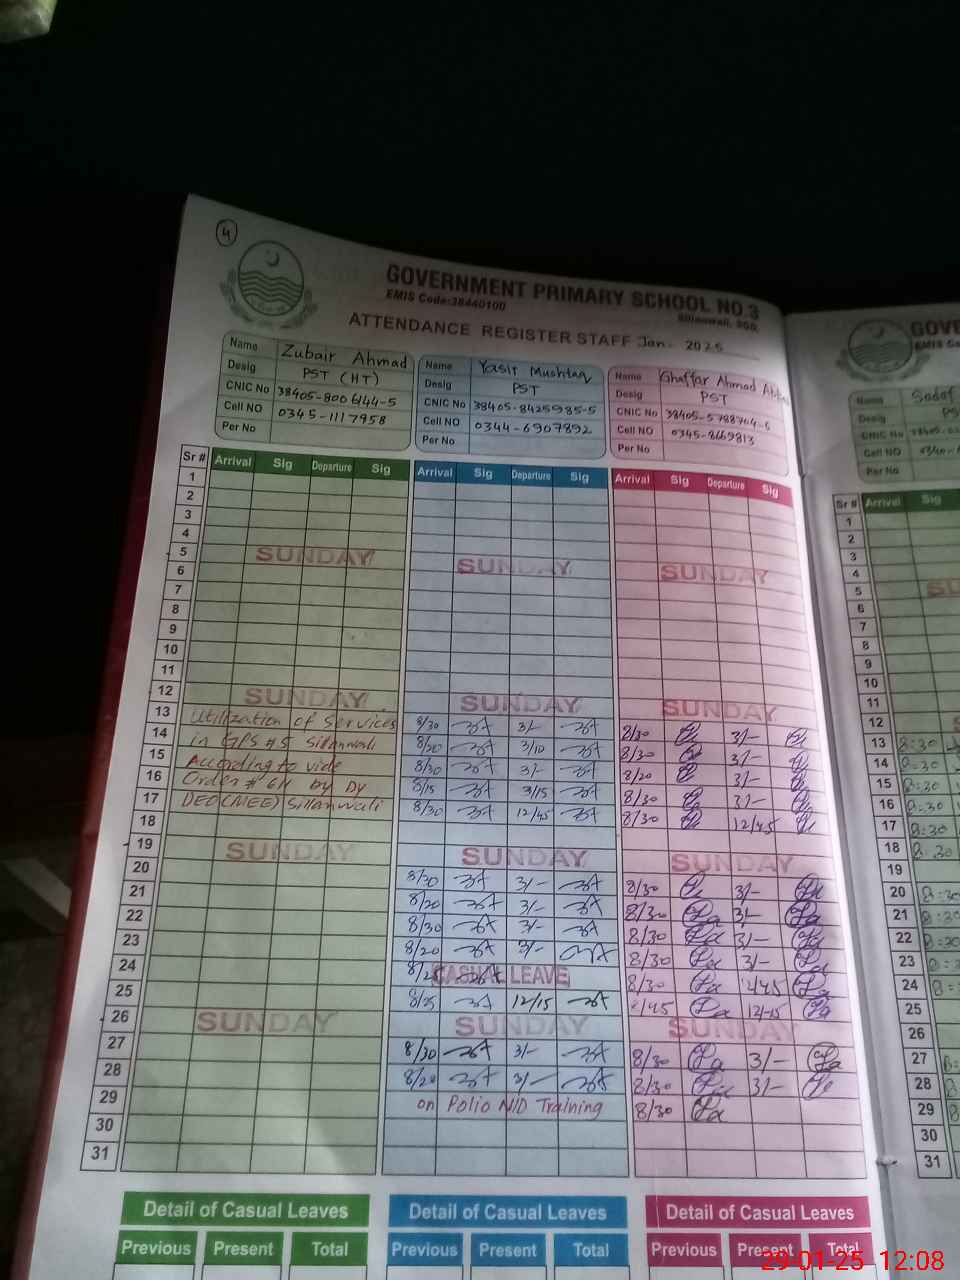 4
GOVERNMENT PRIMARY SCHOOL NO.3
EMIS Code:38440100
Sillanwali, SGD.
ATTENDANCE REGISTER STAFF Jan. 2025
Name Zubair Ahmad
Desig PST (HT)
CNIC No 38405-8006144-5
Cell NO 0345-1117958
Per No
Name Yasir Mushtaq
Desig PST
CNIC No 38405-8425985-5
Cell NO 0344-6907892
Per No
Name Ghaffar Ahmad
Desig PST
CNIC No 38405-5788704-5
Cell NO 0345-8669813
Per No
Sr # Arrival Sig Departure Sig Arrival Sig Departure Sig Arrival Sig Departure Sig
1
2
3
4
5 SUNDAY SUNDAY SUNDAY
6
7
8
9
10
11
12 SUNDAY SUNDAY SUNDAY
13 Utilization of Services 8/30 3/- 8/30 3/-
14 in GPS #5 Sillanwali 8/20 3/10 8/30 3/-
15 According to vide 8/30 3/- 8/20 3/-
16 Order # 611 by Dy 8/15 3/15 8/30 3/-
17 DEO(MEE) Sillanwali 8/30 12/45 8/30 12/45
18
19 SUNDAY SUNDAY SUNDAY
20 8/30 3/- 8/30 3/-
21 8/20 3/- 8/30 3/-
22 8/30 3/- 8/30 3/-
23 8/20 3/- 8/30 3/-
24 CASUAL LEAVE 8/30 12/45
25 8/25 12/15 12/15
26 SUNDAY SUNDAY SUNDAY
27 8/30 3/- 8/30 3/-
28 8/20 3/- 8/30 3/-
29 on Polio NID Training 8/30
30
31
Detail of Casual Leaves Detail of Casual Leaves Detail of Casual Leaves
Previous Present Total Previous Present Total Previous Present Total
GOVE
EMIS
Name Sadaf
Desig PS
CNIC No
Cell NO
Per No
Sr # Arrival Sig
1
2
3
4
5 SU
6
7
8
9
10
11
12
13 8:30
14 8:30
15 8:30
16 8:30
17 8:30
18 8:30
19
20 8:30
21 8:30
22 8:30
23 8:
24 8:
25
26
27 8:
28 8
29 8
30
31
29-01-25 12:08